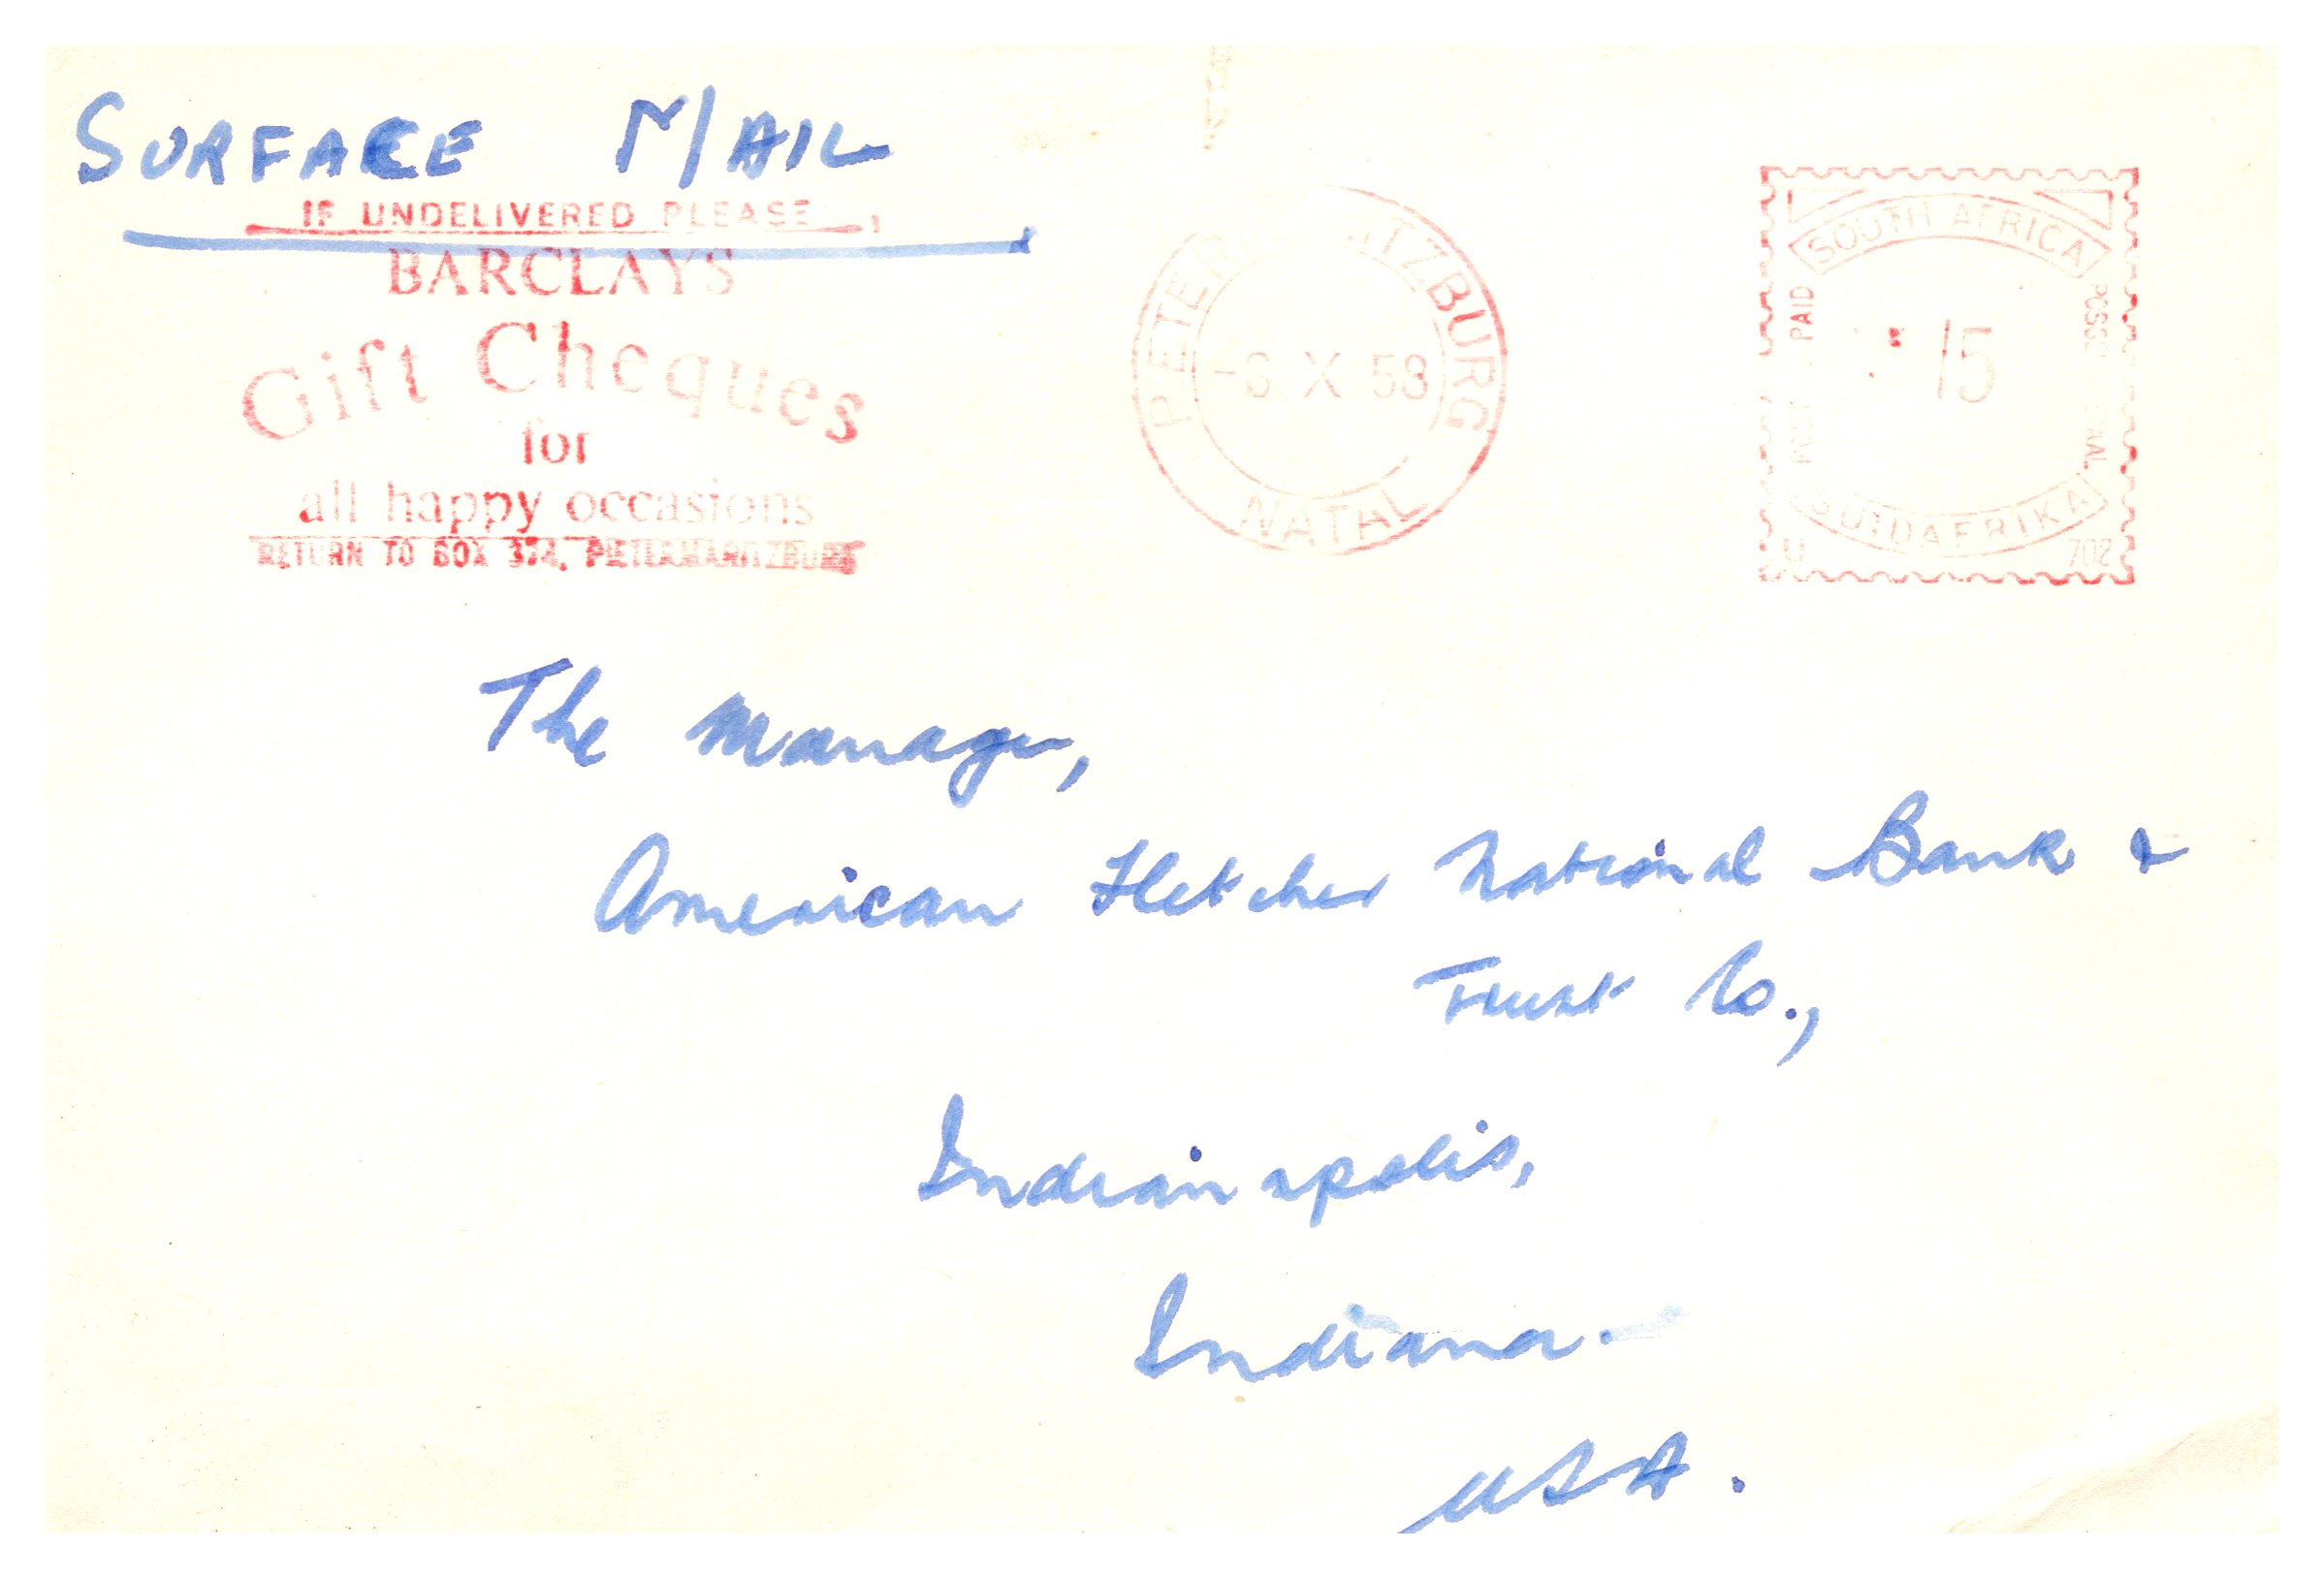 SURFACE MAIL
IF UNDELIVERED PLEASE
BARCLAYS
Gift Cheques
for
all happy occasions
RETURN TO BOX 374, PIETERMARITZBURG
PIETERMARITZBURG
X 58
NATAL
SOUTH AFRICA
PAID
15
POST
SUIDAFRIKA
U 702
The Manager,
American Fletcher National Bank &
Trust Co.,
Indianapolis,
Indiana.
USA.